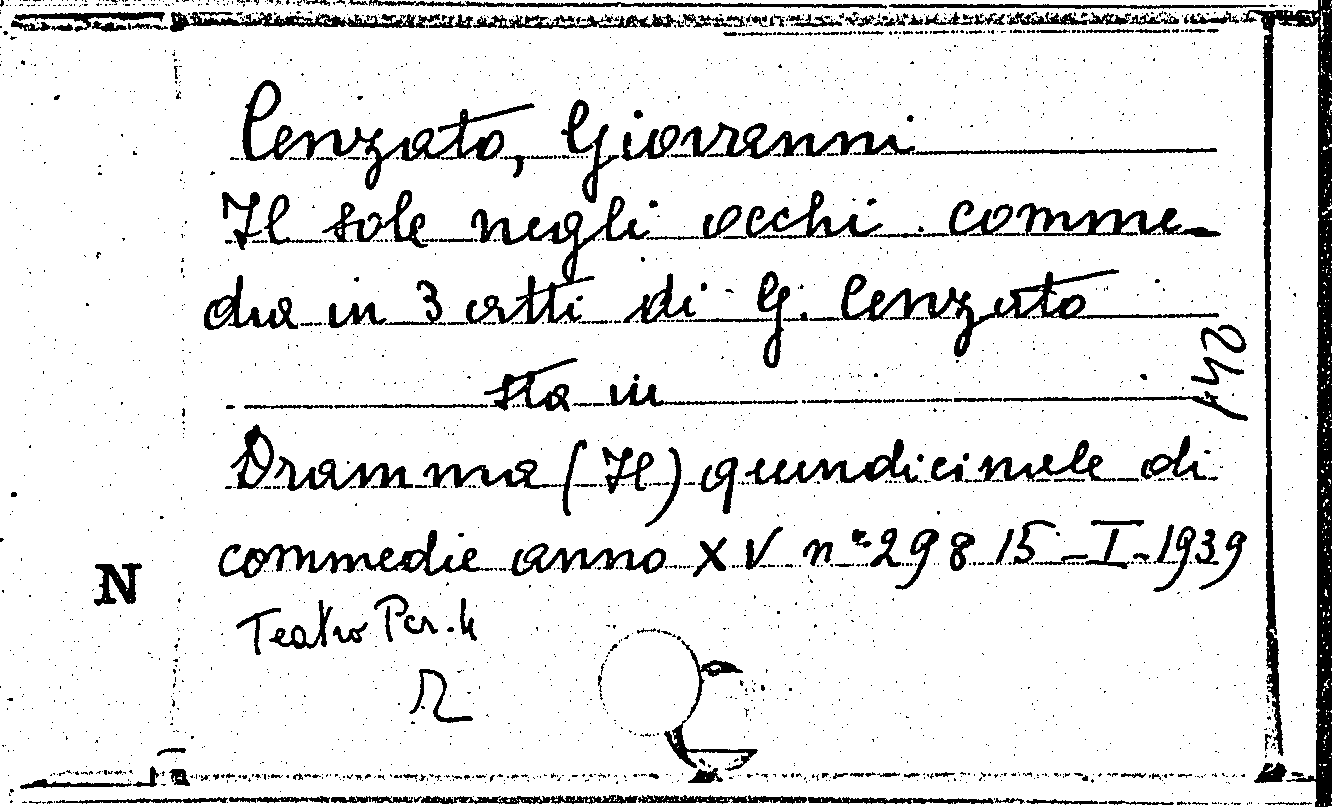 Cenzato, Giovanni
Il sole negli occhi. comme-
dia in 3 atti di G. Cenzato
sta in
Dramma (Il) quindicinale di
commedie anno XV n° 298 15-I-1939
N
Teatro Per. 4